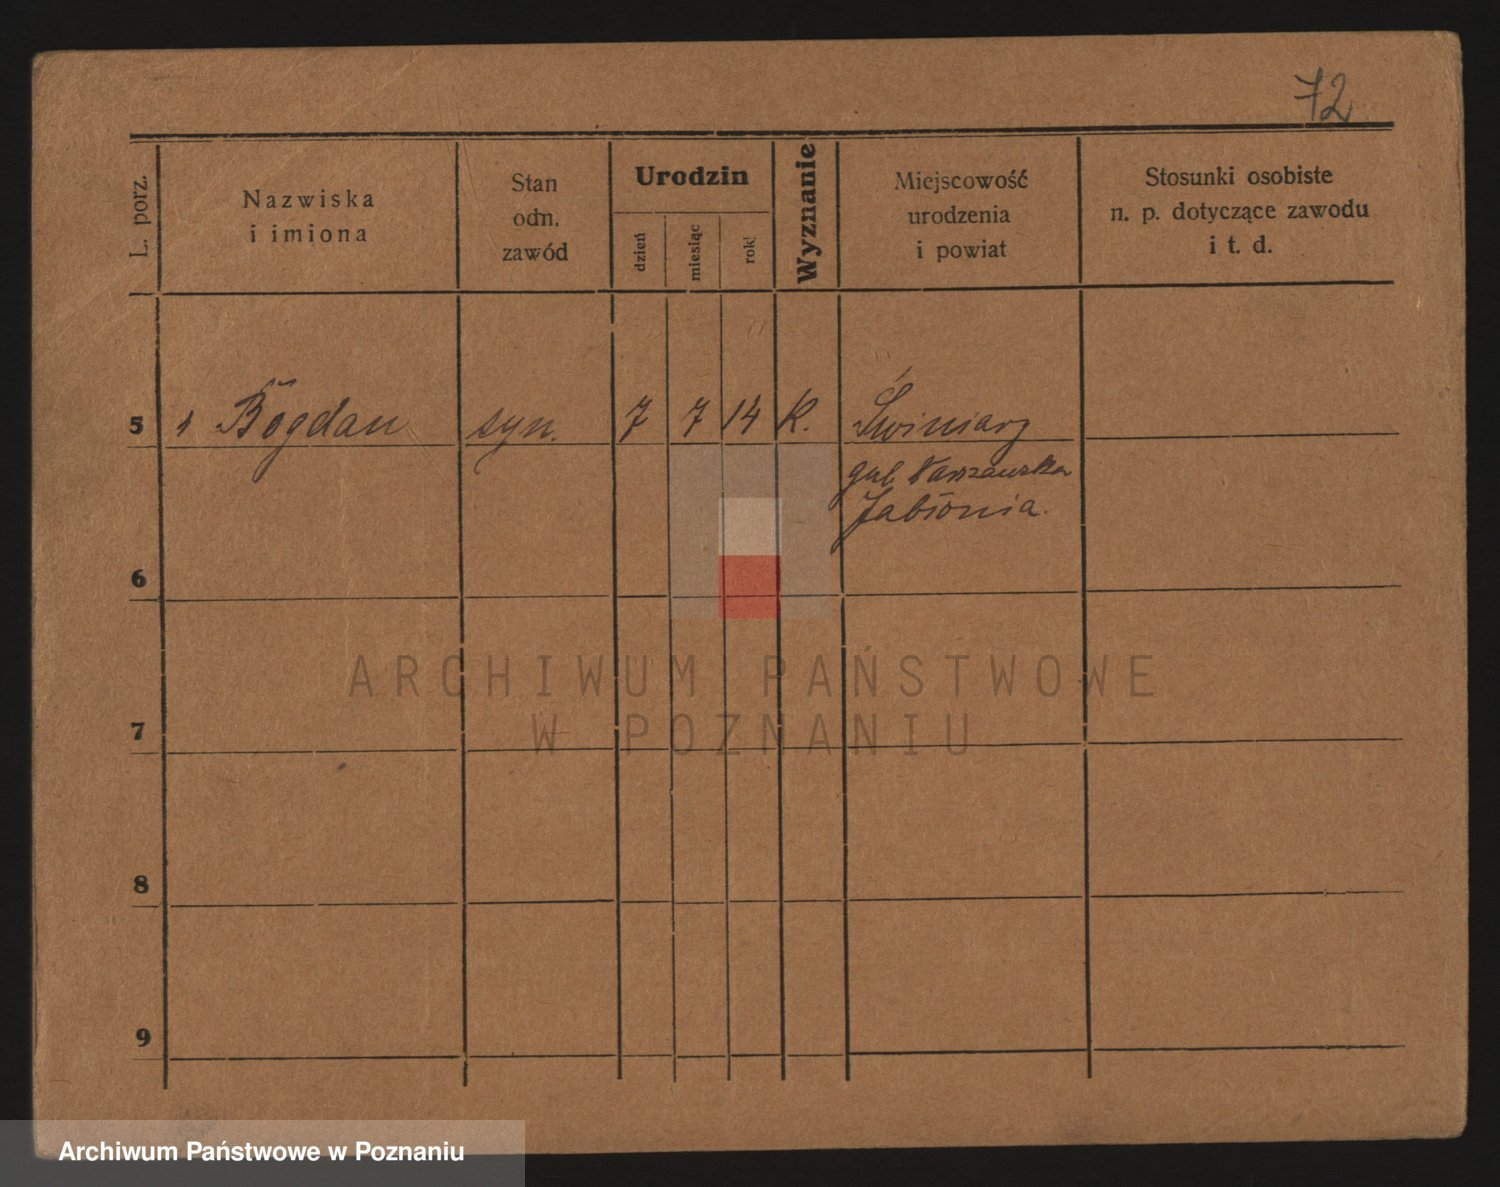 72
L. porz.
Nazwiska
i imiona
Stan
odn.
zawód
Urodzin
dzień
miesiąc
rok
Wyznanie
Miejscowość
urodzenia
i powiat
Stosunki osobiste
n. p. dotyczące zawodu
i t. d.
5 Bogdan syn. 7 7 14 K. Świniary
gub. Warszawska
Jabłonia.
6
7
8
9
ARCHIWUM PAŃSTWOWE
W POZNANIU
Archiwum Państwowe w Poznaniu